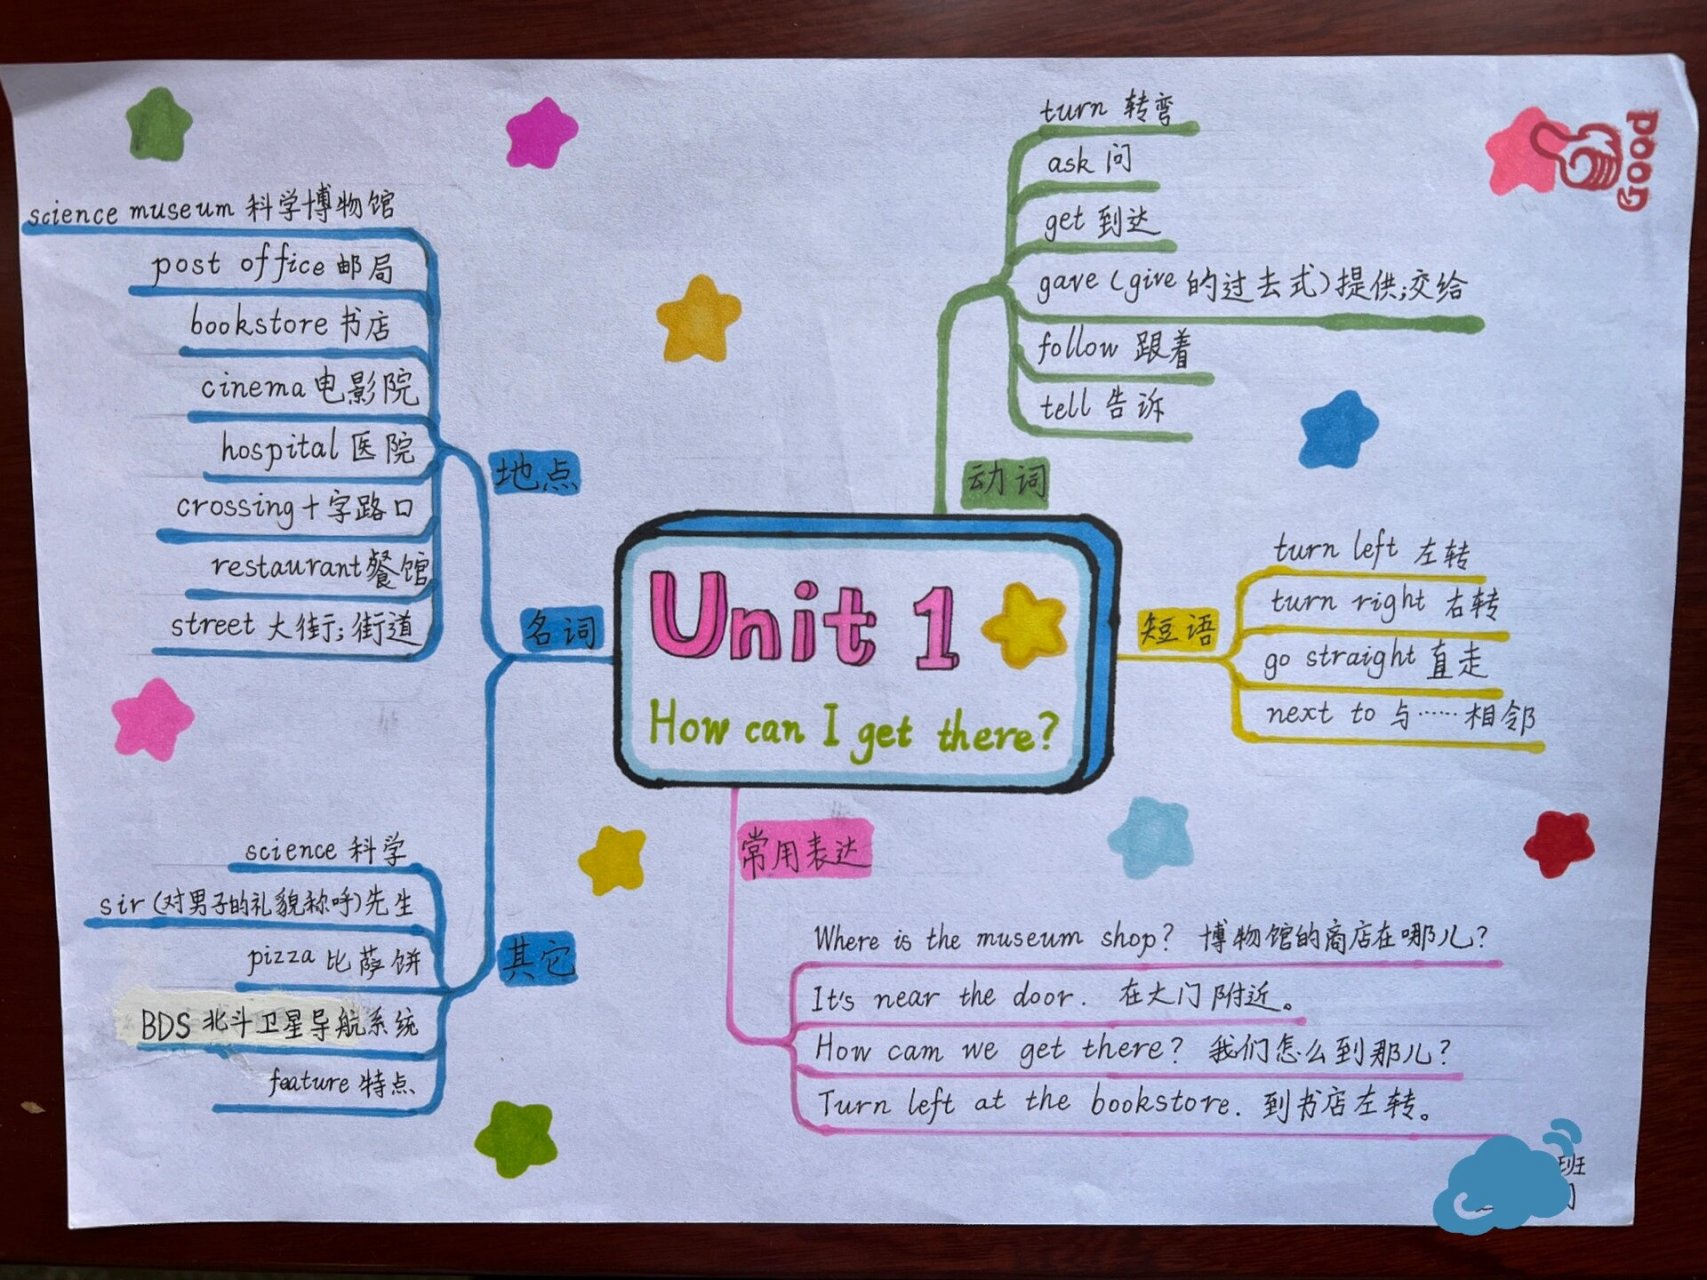 Unit 1
How can I get there?
名词
地点
science museum 科学博物馆
post office 邮局
bookstore 书店
cinema 电影院
hospital 医院
crossing 十字路口
restaurant 餐馆
street 大街;街道
其它
science 科学
sir (对男子的礼貌称呼)先生
pizza 比萨饼
BDS 北斗卫星导航系统
feature 特点
动词
turn 转弯
ask 问
get 到达
gave (give 的过去式)提供;交给
follow 跟着
tell 告诉
短语
turn left 左转
turn right 右转
go straight 直走
next to 与……相邻
常用表达
Where is the museum shop? 博物馆的商店在哪儿?
It's near the door. 在大门附近。
How cam we get there? 我们怎么到那儿?
Turn left at the bookstore. 到书店左转。
Good
班